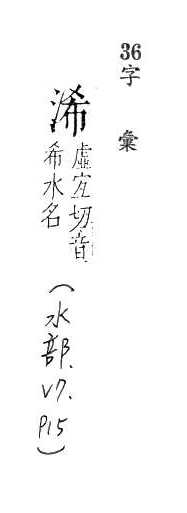 36字彙
浠虛宜切音
希水名
(水部.V7.P15)